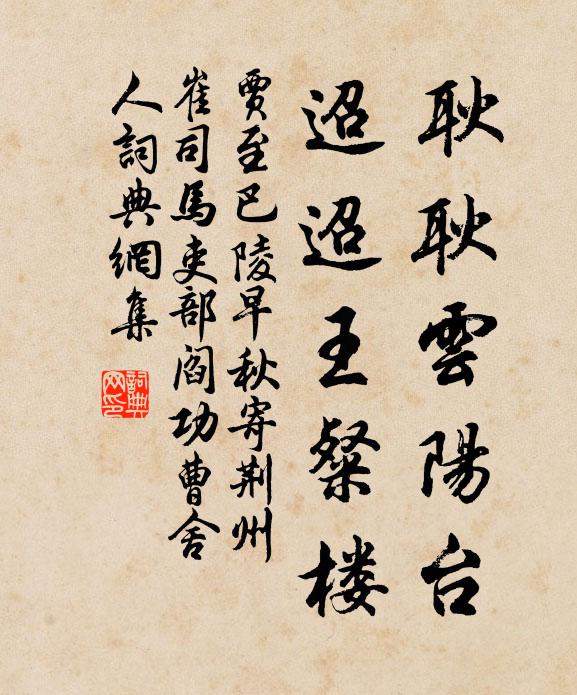 耿耿雲陽台
迢迢王粲楼
賈至巴陵早秋寄荆州
崔司馬吏部閻功曹舍
人詞典網集
詞典网印